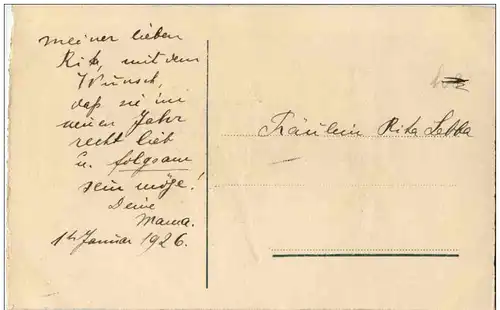 meiner lieben
Rita, mit dem
Wunsch,
daß sie im
neuen Jahr
recht lieb
u. folgsam
sein möge!
Deine
Mama.
1. Januar 1926.
Fräulein Rita